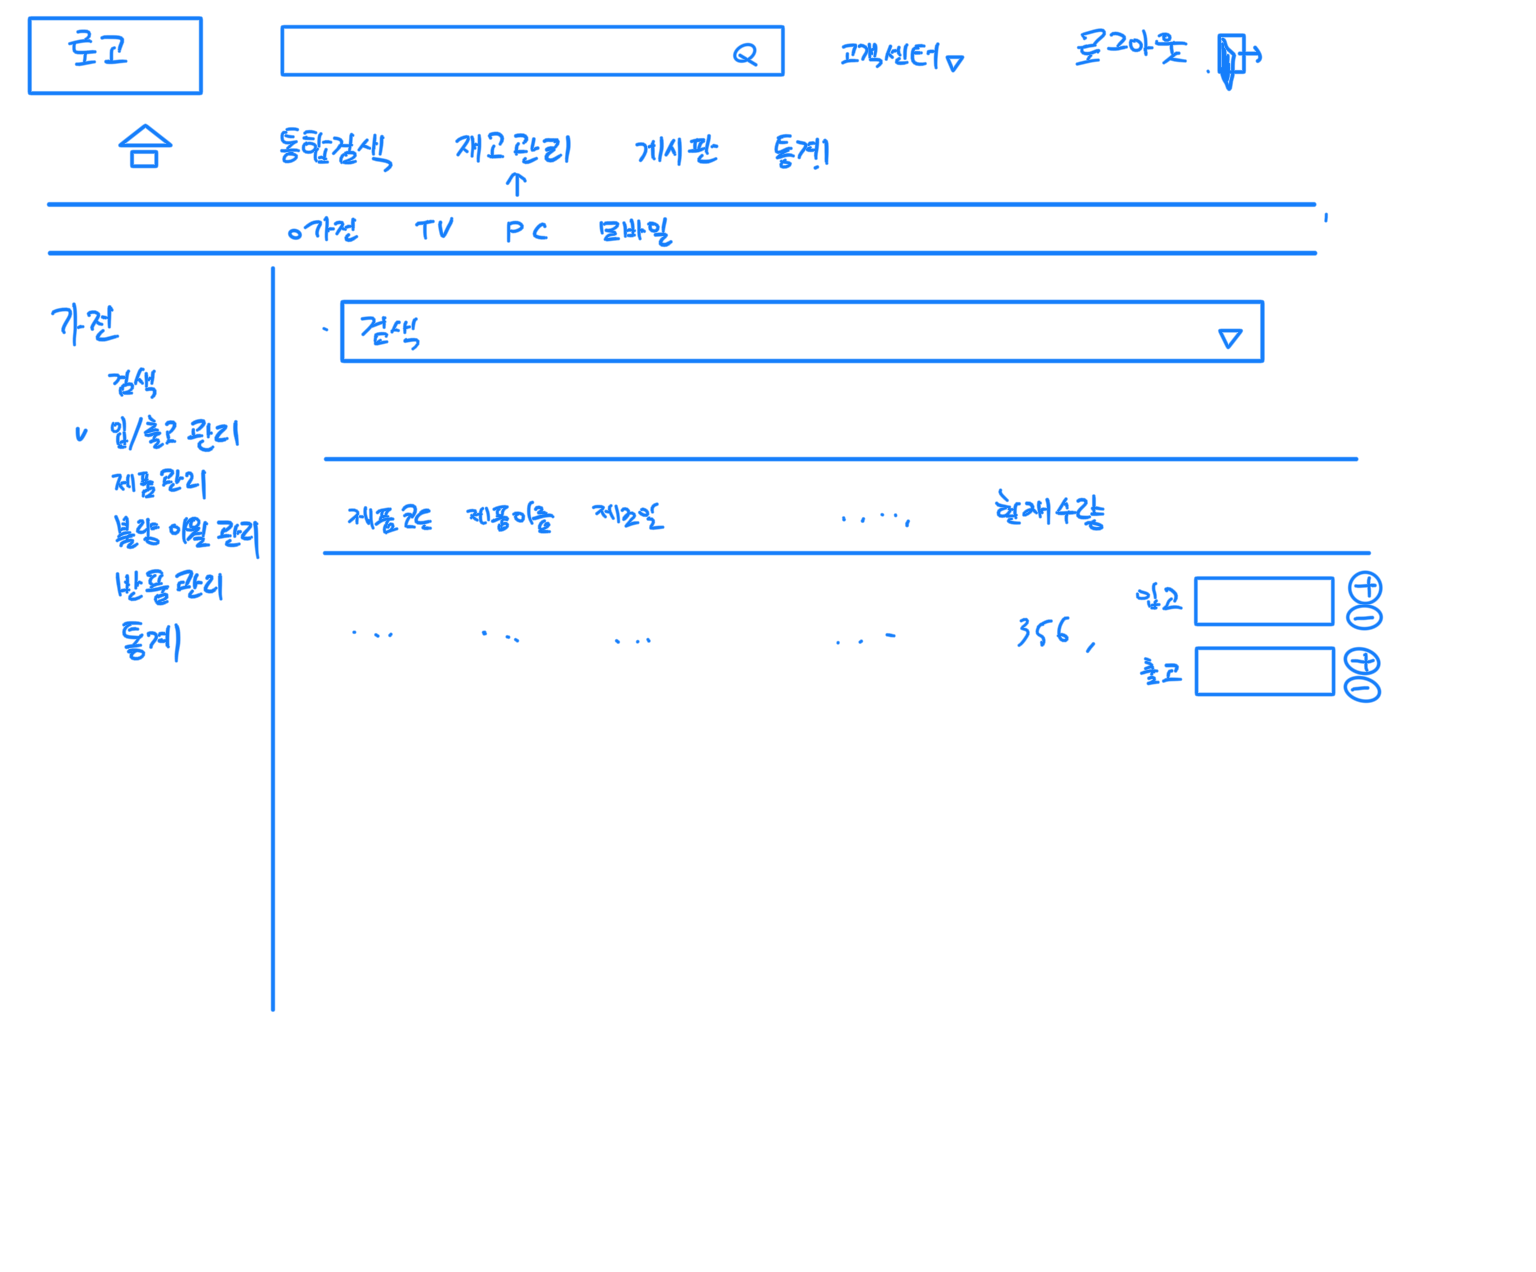 로고
고객센터
로그아웃
통합검색 재고관리 게시판 통계
가전 TV PC 모바일
가전
검색
검색
입/출고 관리
제품관리
불량 이월 관리
반품관리
통계
제품코드 제품이름 제조일 ..... 현재수량
... ... ... ... 356
입고
출고